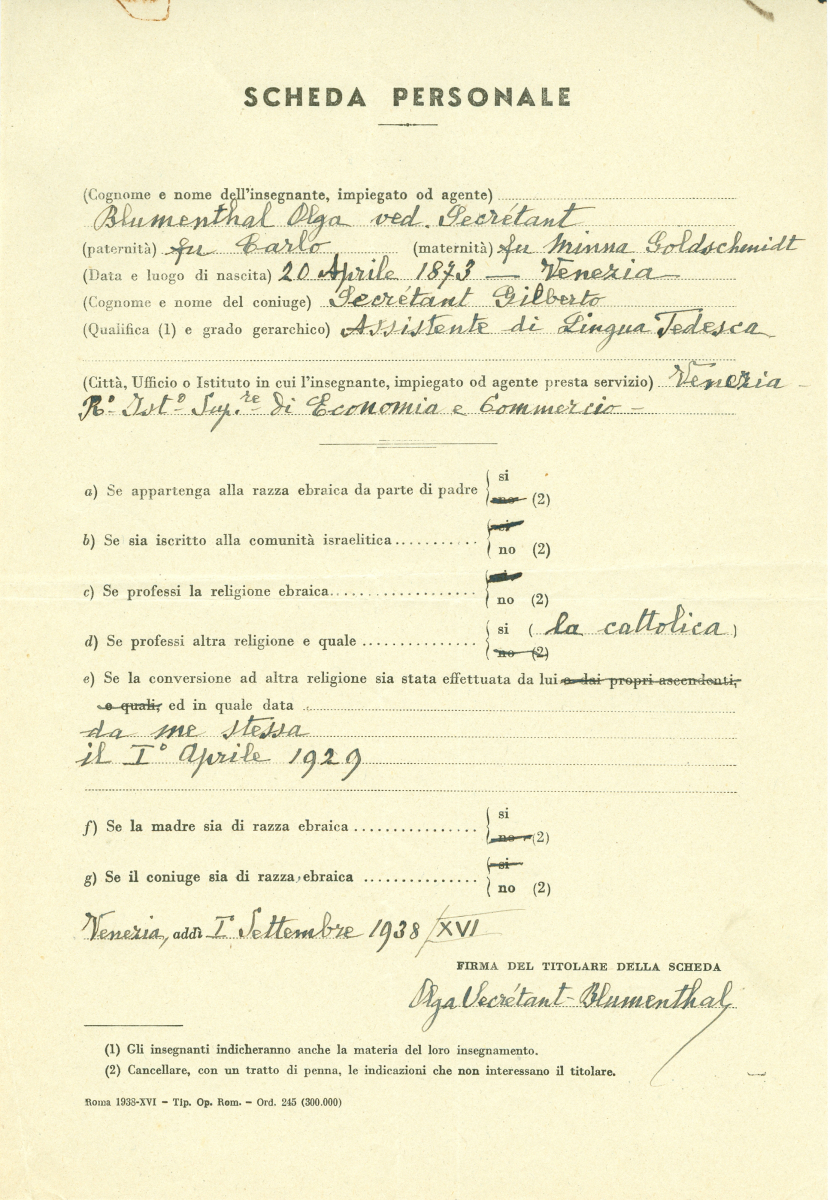 SCHEDA PERSONALE
(Cognome e nome dell'insegnante, impiegato od agente)
Blumenthal Olga ved. Secrétant
(paternità) fu Carlo (maternità) fu Minna Goldschmidt
(Data e luogo di nascita) 20 Aprile 1873 — Venezia —
(Cognome e nome del coniuge) Secrétant Gilberto
(Qualifica (1) e grado gerarchico) Assistente di Lingua Tedesca
(Città, Ufficio o Istituto in cui l'insegnante, impiegato od agente presta servizio) Venezia -
R.º Ist.º Sup.re di Economia e Commercio -
a) Se appartenga alla razza ebraica da parte di padre si
no (2)
b) Se sia iscritto alla comunità israelitica.......... si
no (2)
c) Se professi la religione ebraica.................... si
no (2)
d) Se professi altra religione e quale ................ si ( la cattolica )
no (2)
e) Se la conversione ad altra religione sia stata effettuata da lui o dai propri ascendenti,
e quali, ed in quale data
da me stessa
il Iº Aprile 1929
f) Se la madre sia di razza ebraica ................. si
no (2)
g) Se il coniuge sia di razza ebraica ................ si
no (2)
Venezia, addì Iº Settembre 1938 / XVI
FIRMA DEL TITOLARE DELLA SCHEDA
Olga Secrétant-Blumenthal
(1) Gli insegnanti indicheranno anche la materia del loro insegnamento.
(2) Cancellare, con un tratto di penna, le indicazioni che non interessano il titolare.
Roma 1938-XVI - Tip. Op. Rom. - Ord. 245 (300.000)